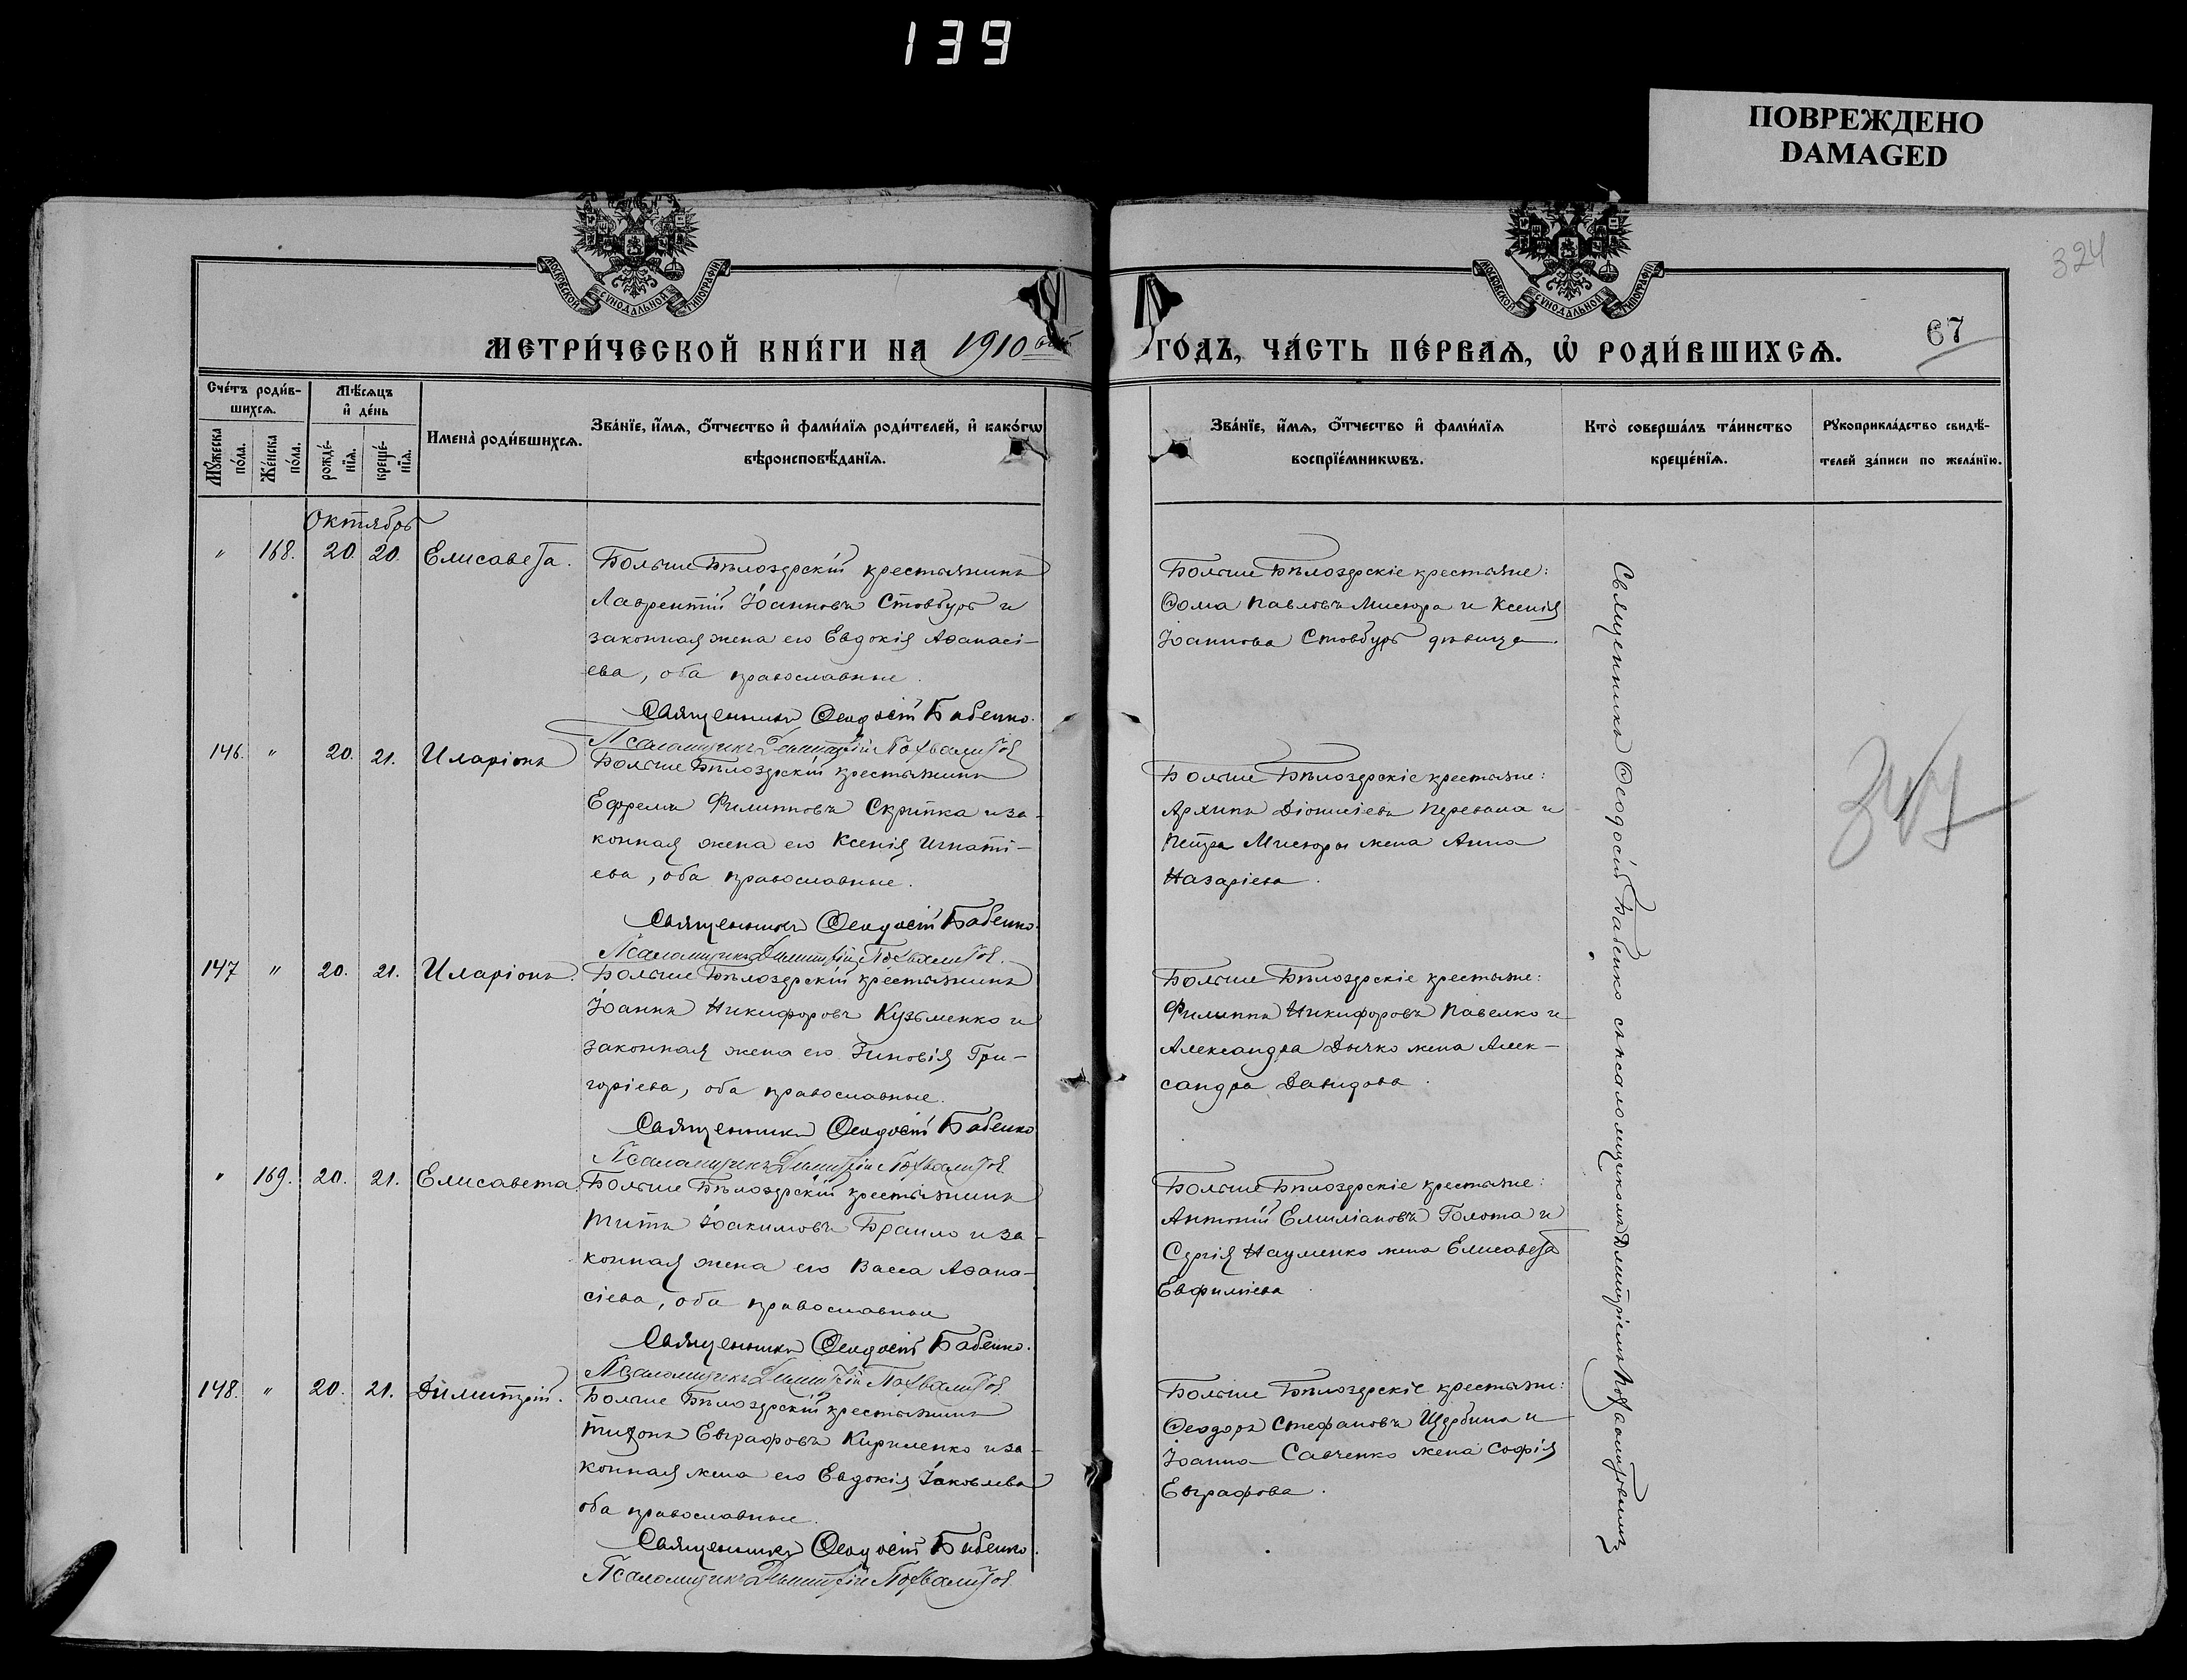 139
ПОВРЕЖДЕНО
DAMAGED
324
МОСКОВСКОЙ СѴНОДАЛЬНОЙ ТИПОГРАФІИ
МОСКОВСКОЙ СѴНОДАЛЬНОЙ ТИПОГРАФІИ
67
МЕТРИ́ЧЕСКОЙ КНИ́ГИ НА 1910
ГО́ДЪ, ЧА́СТЬ ПЕ́РВАѦ, Ѡ҆ РОДИ́ВШИХСѦ.
Сче́тъ роди́в-
шихсѧ.
Мѣ́сѧцъ
и҆ де́нь
Мꙋ́жеска
по́ла.
Же́нска
по́ла.
рожде́-
нїѧ.
креще́-
нїѧ.
Имена̀ роди́вшихсѧ.
Зва́нїе, и҆́мѧ, ѻ҆́тчество и҆ фами́лїѧ роди́телей, и҆ како́гѡ
вѣроисповѣ́данїѧ.
Зва́нїе, и҆́мѧ, ѻ҆́тчество и҆ фами́лїѧ
воспрїе́мникѡвъ.
Кто̀ соверша́лъ та́инство
креще́нїѧ.
Рꙋкоприкла́дство свидѣ́-
телей за́писи по жела́нїю.
Октябрь
" 168. 20. 20. Елисавета.
Больше Бѣлозерскій крестьянинъ
Лаврентій Іоанновъ Стовбуръ и
законная жена его Евдокія Аѳанасі-
ева, оба православные.
Священникъ Ѳеодосій Бабенко.
Псаломщикъ Димитрій Похвалитов
Больше Бѣлозерскіе крестьяне:
Ѳома Павловъ Мисюра и Ксенія
Іоаннова Стовбуръ дѣвица.
146. " 20. 21. Иларіонъ
Больше Бѣлозерскій крестьянинъ
Ефремъ Филипповъ Скрипка и за-
конная жена его Ксенія Игнаті-
ева, оба православные.
Священникъ Ѳеодосій Бабенко.
Псаломщикъ Димитрій Похвалитов.
Больше Бѣлозерскіе крестьяне:
Архипъ Діонисіевъ и
Петра Мисюры жена Анна
Назаріева.
147 " 20. 21. Иларіонъ.
Больше Бѣлозерскій крестьянинъ
Іоаннъ Никифоровъ Кузьменко и
законная жена его Зиновія Гри-
горіева, оба православные.
Священникъ Ѳеодосій Бабенко
Псаломщикъ Димитрій Похвалитов.
Больше Бѣлозерскіе крестьяне:
Филиппъ Никифоровъ Павелко и
Александра Дычко жена Алек-
сандра Давидова.
" 169. 20. 21. Елисавета.
Больше Бѣлозерскій крестьянинъ
Титъ Іоакимовъ Браило и за-
конная жена его Васса Аѳана-
сіева, оба православные
Священникъ Ѳеодосій Бабенко.
Псаломщикъ Димитрій Похвалитов.
Больше Бѣлозерскіе крестьяне:
Антоній Емиліановъ Голота и
Сергія Науменко жена Елисавета
Евфиміева.
148. " 20. 21. Димитрій.
Больше Бѣлозерскій крестьянинъ
Тихонъ Евграфовъ Кириленко и за-
конная жена его Евдокія Іаковлева
оба православные.
Священникъ Ѳеодосій Бабенко.
Псаломщикъ Димитрій Похвалитов.
Больше Бѣлозерскіе крестьяне:
Ѳеодоръ Стефановъ Щербина и
Іоанна Савченко жена Софія
Евграфова.
Священникъ Ѳеодосій Бабенко съ псаломщикомъ Димитріемъ Похвалитовымъ